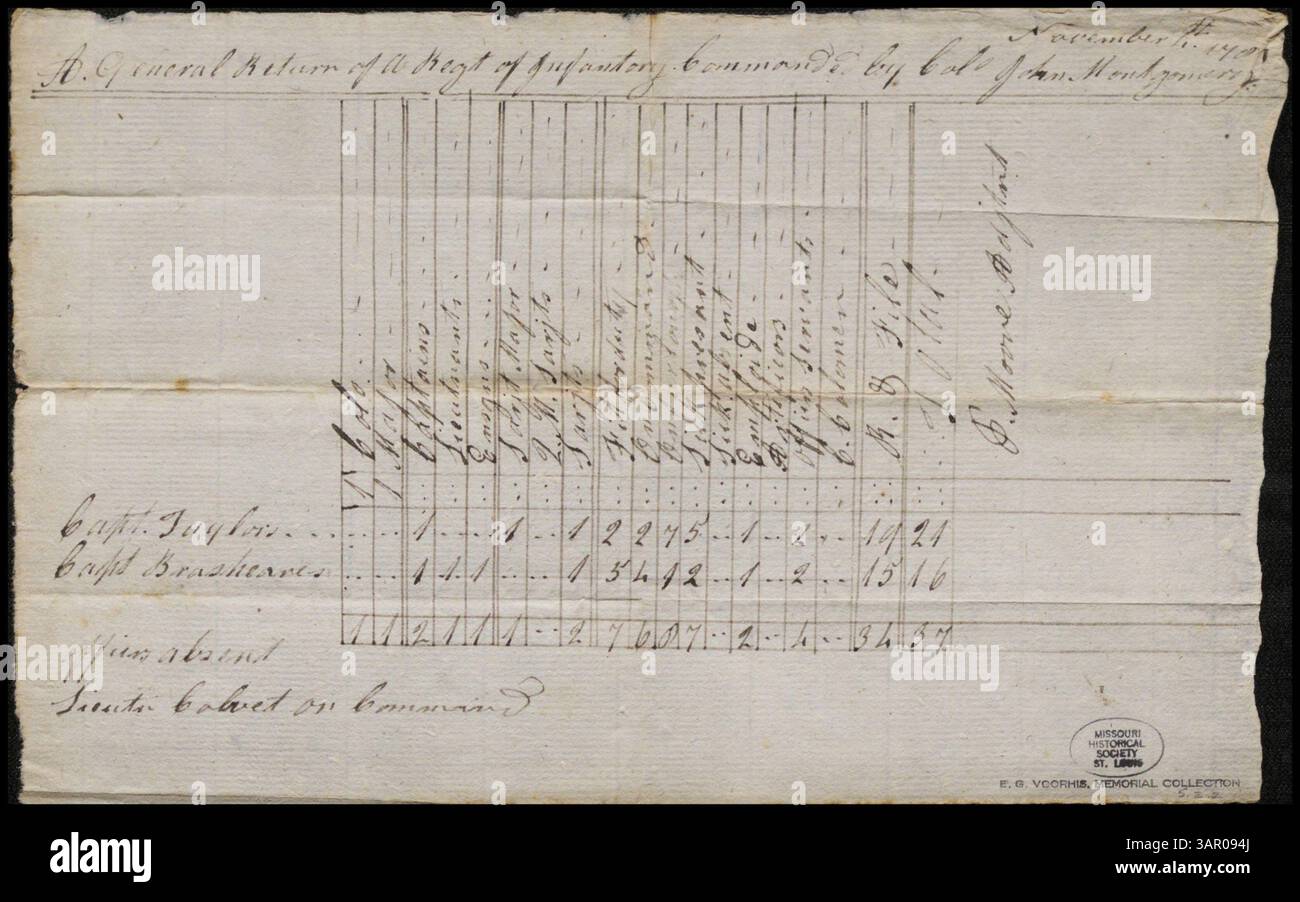 November 1st
A. General Return of A Regt of Infantory Command'd by Colo John Montgomery
Colo
Major
Captains
Lieutnants
Ensigns
Sarjt Major
Q. M. Sarjts
Sarjts
Fit for duty
On Command
On
Sick present
Sick absent
Confloide
Artifficers
Officers Servants
C. Colomen
R. & File
Total
P. Moore Adjtnt
1 1
Capt. Taylors 1 1 1 2 2 7 5 1 2 19 21
Capt Brasheares 1 1 1 1 5 4 1 2 1 2 15 16
1 1 2 1 1 1 2 7 6 8 7 2 4 34 37
Officers absent
Lieutn Calvet on Command
MISSOURI
HISTORICAL
SOCIETY
ST. LOUIS
E. G. VOORHIS, MEMORIAL COLLECTION
alamy
alamy
Image ID: 3AR094J
www.alamy.com